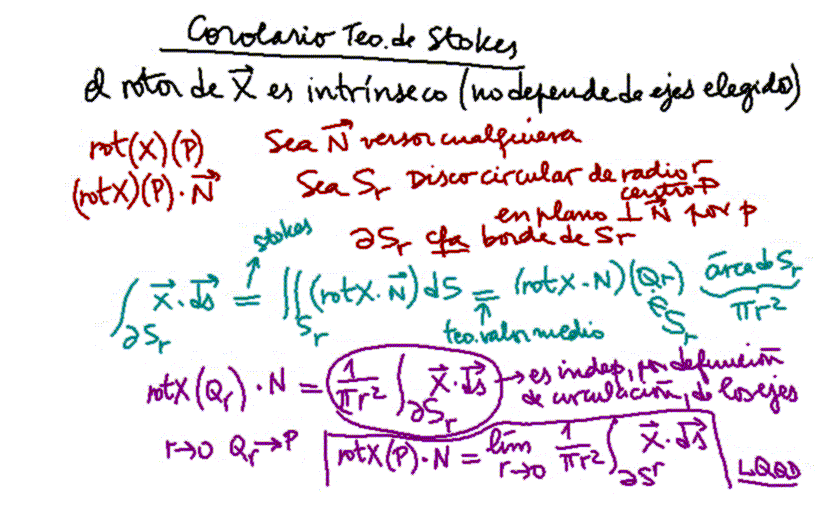 Corolario Teo. de Stokes
el rotor de X⃗ es intrínseco (no depende de ejes elegido)
rot(X)(P) Sea N⃗ versor cualquiera
(rotX)(P)·N⃗ Sea Sr Disco circular de radio r
centro P
en plano ⊥ N⃗ por p
∂Sr cfa borde de Sr
stokes
∫_{∂Sr} X⃗·ds⃗ = ∬_{Sr} (rotX·N⃗) dS = (rotX·N)(Qr) área de Sr
teo. valor medio ∈ Sr πr²
rotX(Qr)·N = (1/πr² ∫_{∂Sr} X⃗·ds⃗) → es indep, por definición
de circulación, de los ejes
r→0 Qr→P rotX(P)·N = lím_{r→0} 1/πr² ∫_{∂Sr} X⃗·ds⃗ LQQD